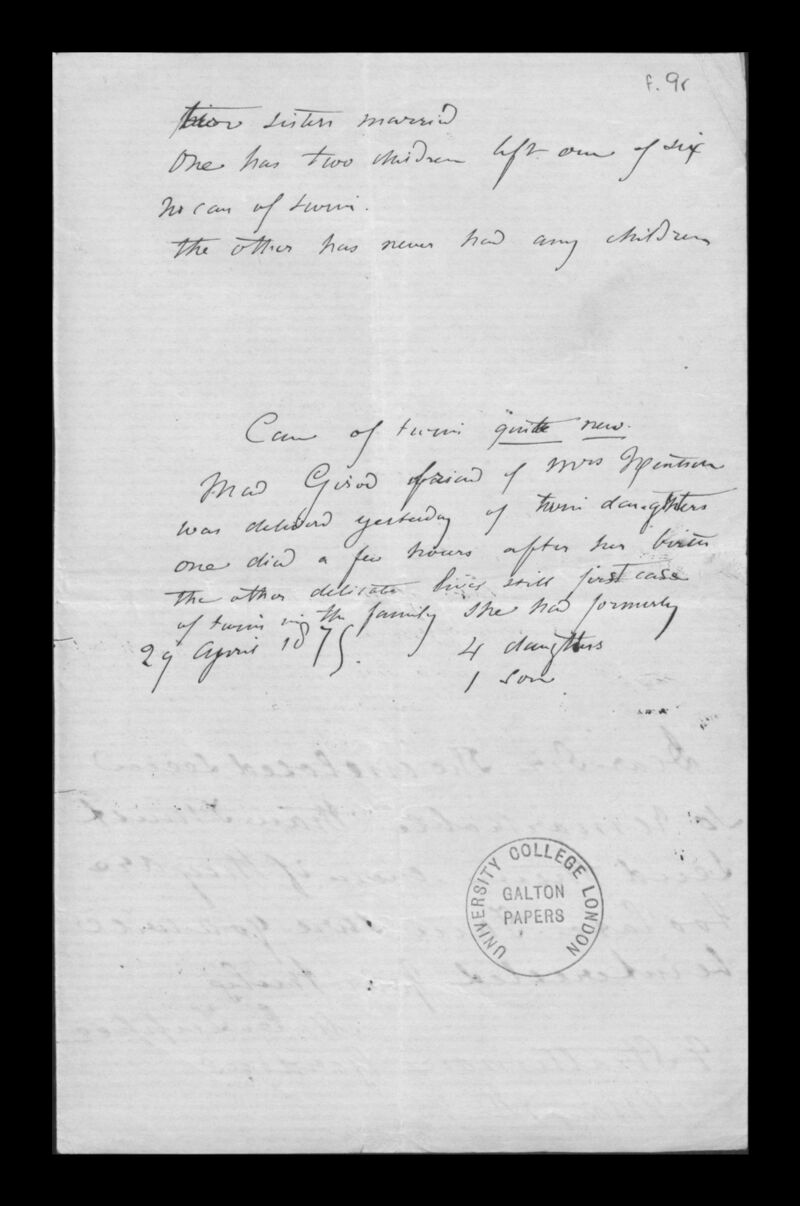 f. 9r
two sisters married
One has two children left one of six
no case of twins.
the other has never had any children
Case of twins quite new.
Mad Girod friend of Mrs
was delivered yesterday of twin daughters
one died a few hours after her birth
the other delicate lives still first case
of twins in the family she had formerly
29 April 1875. 4 daughters
1 son
UNIVERSITY COLLEGE LONDON
GALTON
PAPERS